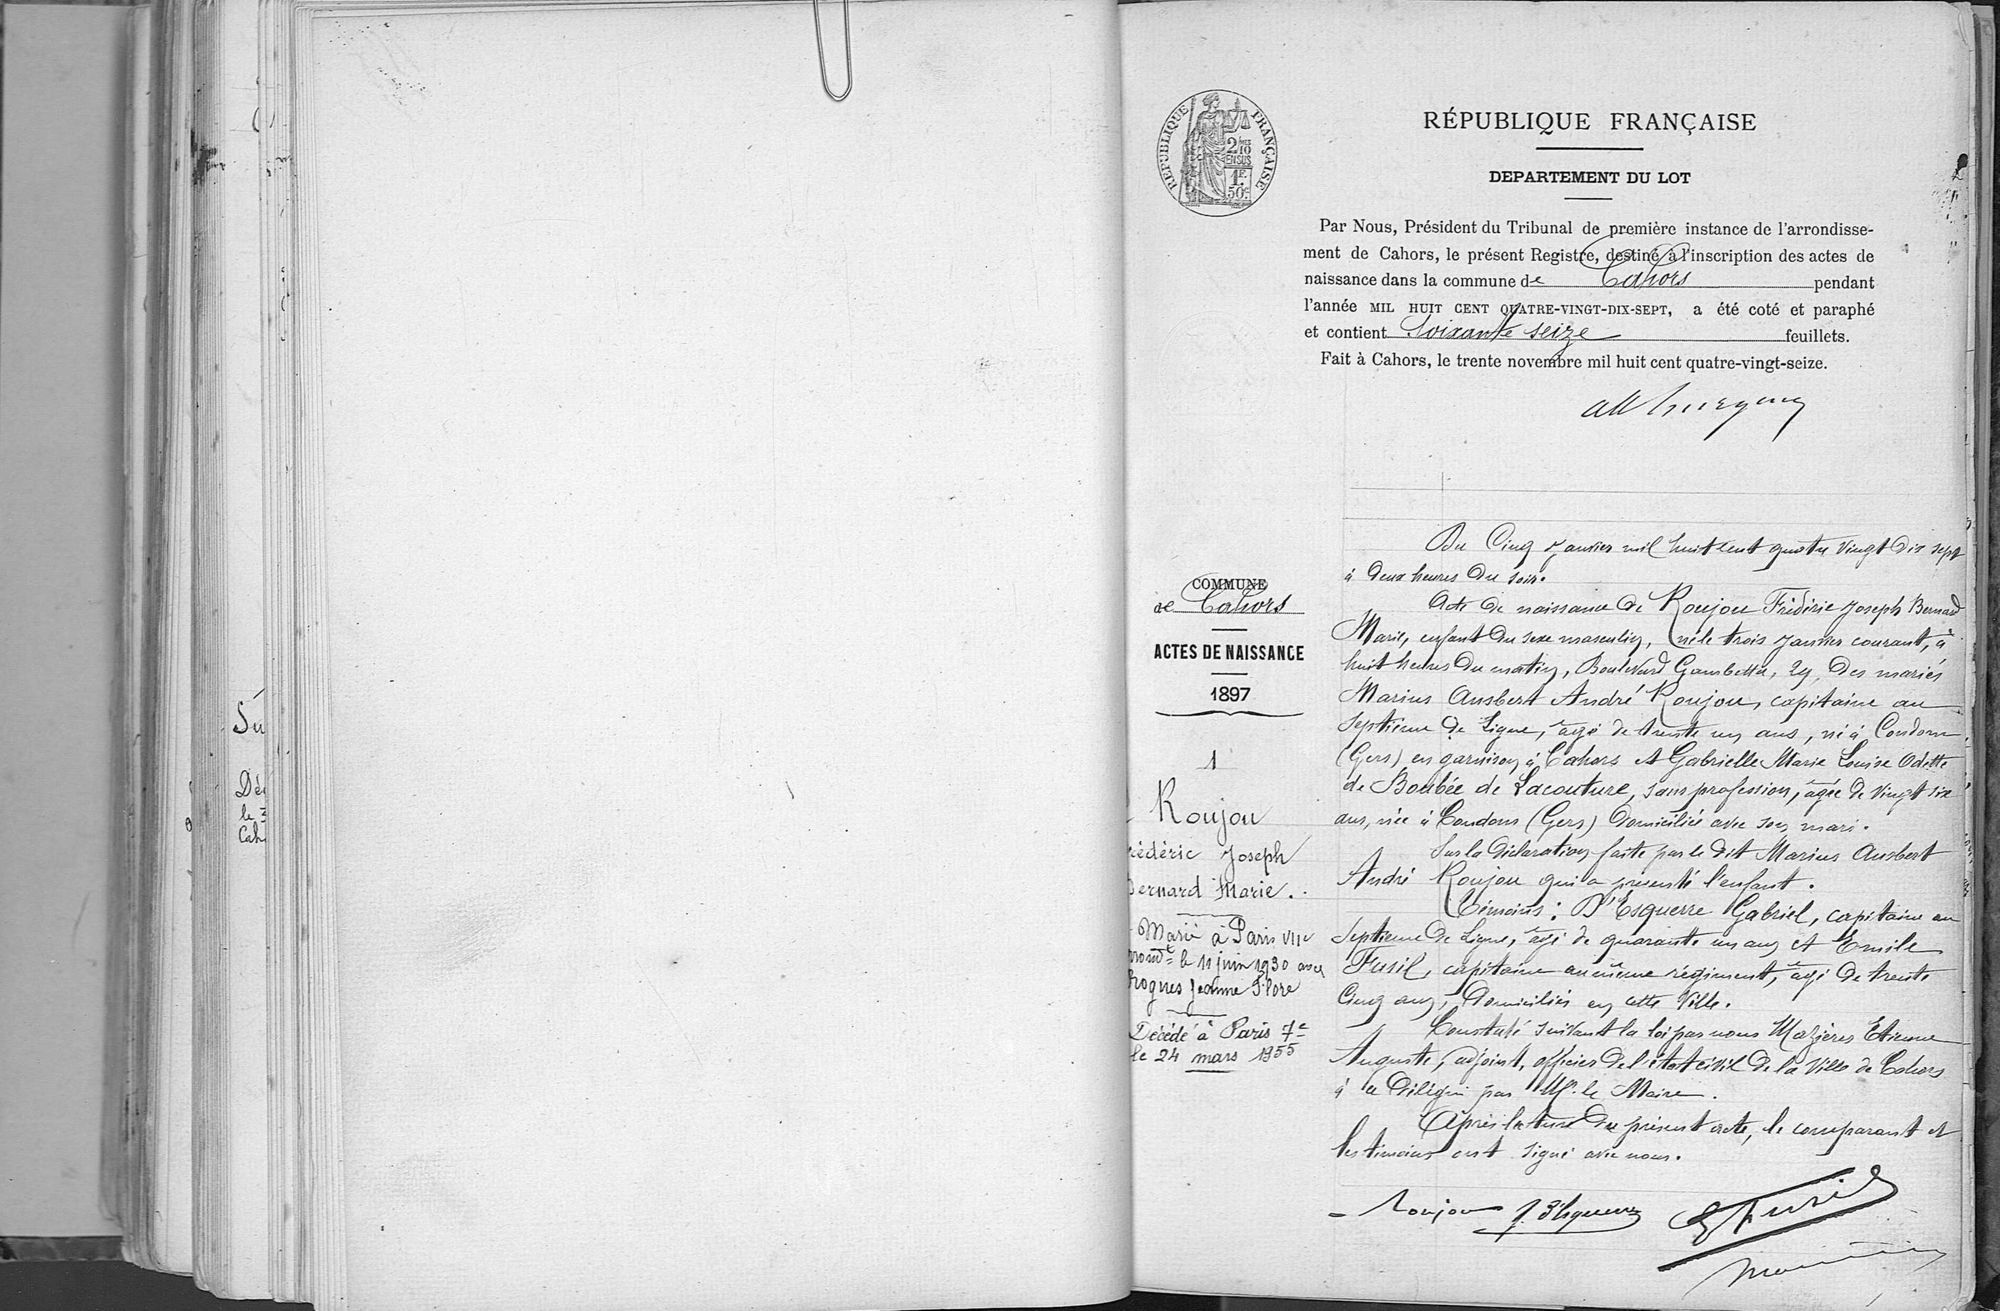 Su
Déc
le 3
Cah
RÉPUBLIQUE FRANÇAISE
2/10
EN SUS
1F
50c
RÉPUBLIQUE FRANÇAISE
DEPARTEMENT DU LOT
Par Nous, Président du Tribunal de première instance de l'arrondisse-
ment de Cahors, le présent Registre, destiné à l'inscription des actes de
naissance dans la commune de Cahors pendant
l'année MIL HUIT CENT QUATRE-VINGT-DIX-SEPT, a été coté et paraphé
et contient Soixante seize feuillets.
Fait à Cahors, le trente novembre mil huit cent quatre-vingt-seize.
COMMUNE
de Cahors
ACTES DE NAISSANCE
1897
1
Roujou
rédéric Joseph
Bernard Marie.
Marié à Paris VIIe
rondt le 11 juin 1930 avec
Jeanne Flore
Décédé à Paris 7e
le 24 mars 1955
Du Cinq Janvier mil huit cent quatre vingt dix sept
à deux heures du soir.
Acte de naissance de Roujou Frédéric Joseph Bernard
Marie, enfant du sexe masculin, né le trois Janvier courant, à
huit heures du matin, Boulevard Gambetta, 29, des mariés
Marius Ausbert André Roujou, capitaine au
septième de Ligne, âgé de trente un ans, né à Condom
(Gers) en garnison à Cahors et Gabrielle Marie Louise Odette
de Boubée de Lacouture, sans profession, âgée de vingt six
ans, née à Condom (Gers) domiciliée avec son mari.
Sur la déclaration faite par le dit Marius Ausbert
André Roujou qui a présenté l'enfant.
Témoins: D'Esquerre Gabriel, capitaine au
septième de Ligne, âgé de quarante un ans et Emile
Fusil, capitaine au même régiment, âgé de trente
cinq ans, domiciliés en cette Ville.
Constaté suivant la loi par nous Mazières Etienne
Auguste, adjoint, officier de l'état civil de la Ville de Cahors
à ce délégué par Mr. le Maire.
Après lecture du présent acte, le comparant et
les témoins ont signé avec nous.
Roujou E Fusil